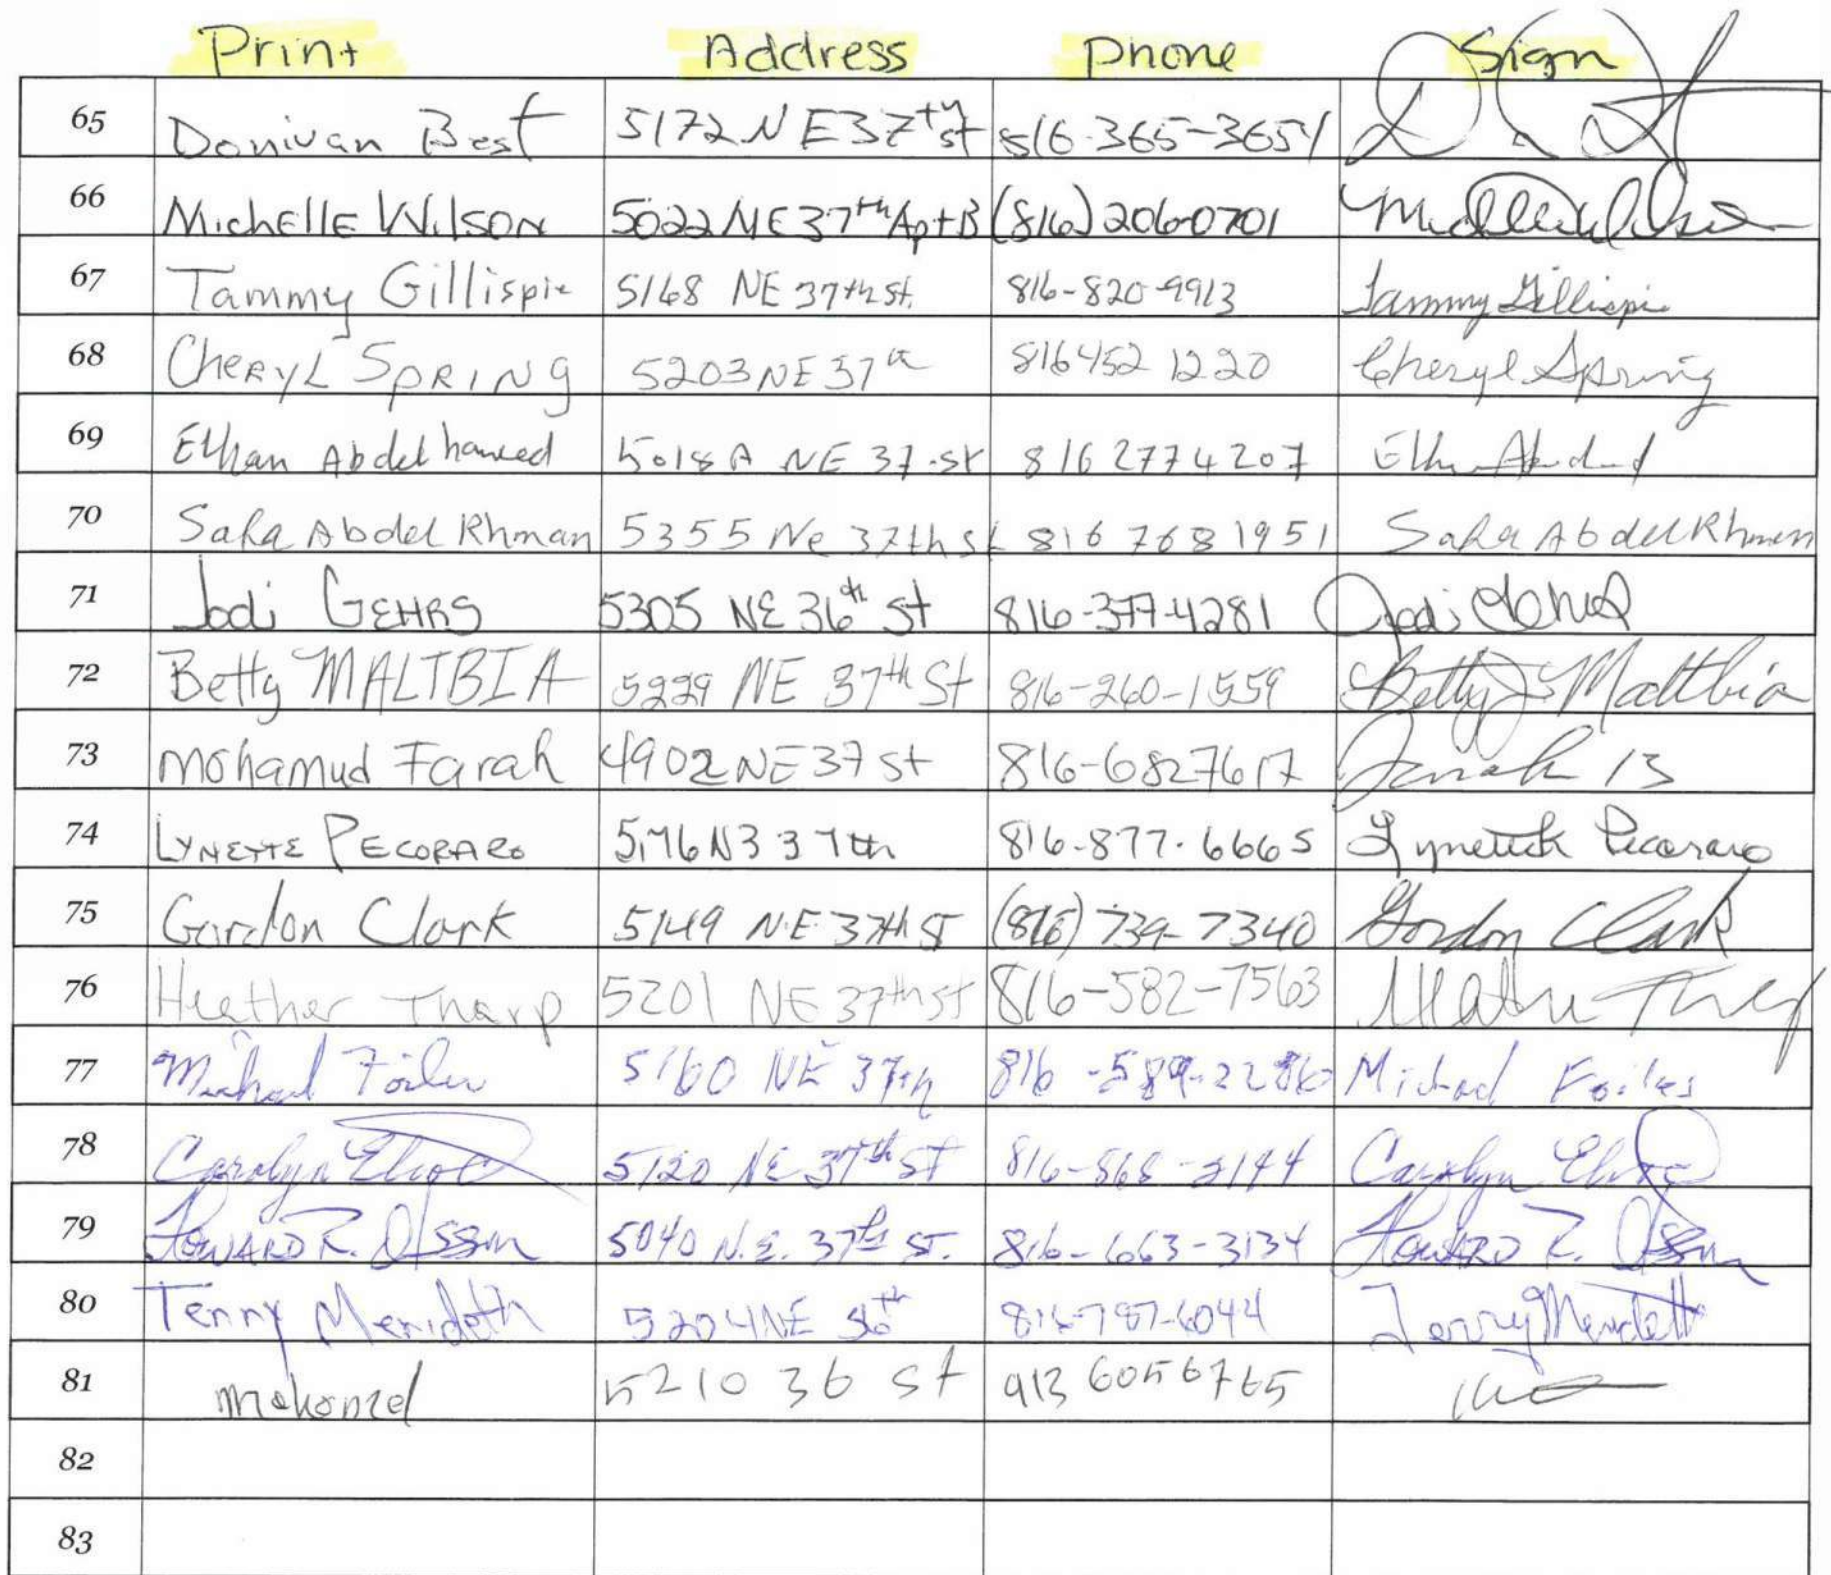 Print Address Phone Sign
65 Donivan Best 5172 NE 37th st 816-365-3651
66 Michelle Wilson 5022 NE 37th Apt B (816) 206-0701 Michelle Wilson
67 Tammy Gillispie 5168 NE 37th st. 816-820-9913 Tammy Gillispie
68 Cheryl Spring 5203 NE 37th 816 452 1220 Cheryl Spring
69 Abdelhameed 5018 A NE 37-st 816 277 4207
70 Safa Abdel Rhman 5355 Ne 37th st 816 768 1951 Safa Abdel Rhman
71 Jodi GEHRS 5305 NE 36th St 816-377-4281 Jodi Gehrs
72 Betty MALTBIA 5229 NE 37th St 816-260-1559 Betty J Maltbia
73 Mohamud Farah 4902 NE 37 st 816-6827617 Farah
74 LYNETTE PECORARO 5176 NE 37th 816-877-6665 Lynette Pecoraro
75 Gordon Clark 5149 N.E. 37th ST (816) 739-7340 Gordon Clark
76 Heather Tharp 5201 NE 37th st 816-582-7563
77 Michael Foiles 5160 NE 37th 816 Michael Foiles
78 Carolyn 5120 NE 37th ST Carolyn
79 HOWARD R. Olsson 5040 N.E. 37th ST. 816-663-3134 Howard R. Olsson
80 Terry Merideth 5204 NE 36th 816-787-6044 Terry Merideth
81 5210 36 St 913 6056765
82
83